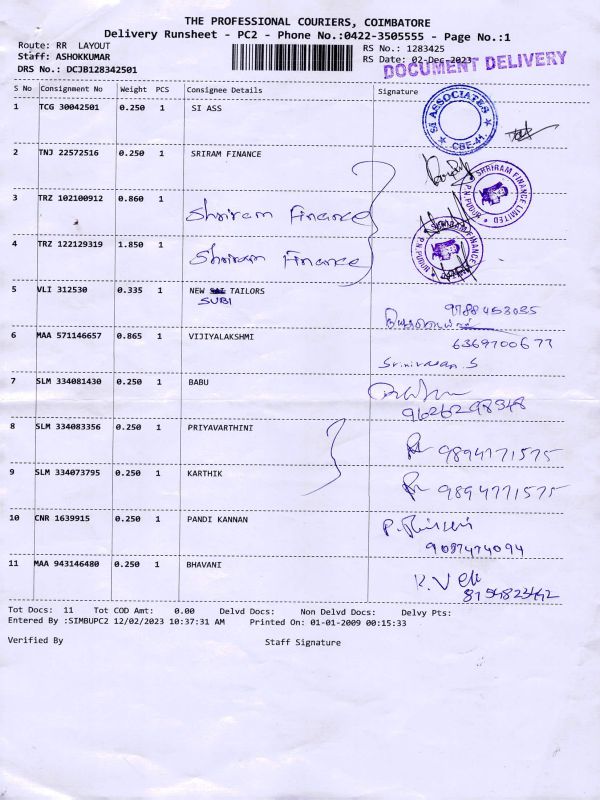 THE PROFESSIONAL COURIERS, COIMBATORE
Delivery Runsheet - PC2 - Phone No.:0422-3505555 - Page No.:1
Route: RR LAYOUT
RS No.: 1283425
Staff: ASHOKKUMAR
RS Date: 02-Dec-2023
DRS No.: DCJB128342501
DOCUMENT DELIVERY
S No Consignment No Weight PCS Consignee Details Signature
1 TCG 30042501 0.250 1 SI ASS
SI ASSOCIATES
CBE-41.
2 TNJ 22572516 0.250 1 SRIRAM FINANCE
SHRIRAM FINANCE LIMITED
P.N. PUDUR
3 TRZ 102100912 0.860 1
Shriram Finance
4 TRZ 122129319 1.850 1
Shriram Finance
5 VLI 312530 0.335 1 NEW TAILORS
SUBI
9788453035
6 MAA 571146657 0.865 1 VIJIYALAKSHMI
6369700673
Srinivasan.S
7 SLM 334081430 0.250 1 BABU
9626298348
8 SLM 334083356 0.250 1 PRIYAVARTHINI
9894771575
9 SLM 334073795 0.250 1 KARTHIK
9894771575
10 CNR 1639915 0.250 1 PANDI KANNAN
11 MAA 943146480 0.250 1 BHAVANI
Tot Docs: 11 Tot COD Amt: 0.00 Delvd Docs: Non Delvd Docs: Delvy Pts:
Entered By :SIMBUPC2 12/02/2023 10:37:31 AM Printed On: 01-01-2009 00:15:33
Verified By Staff Signature